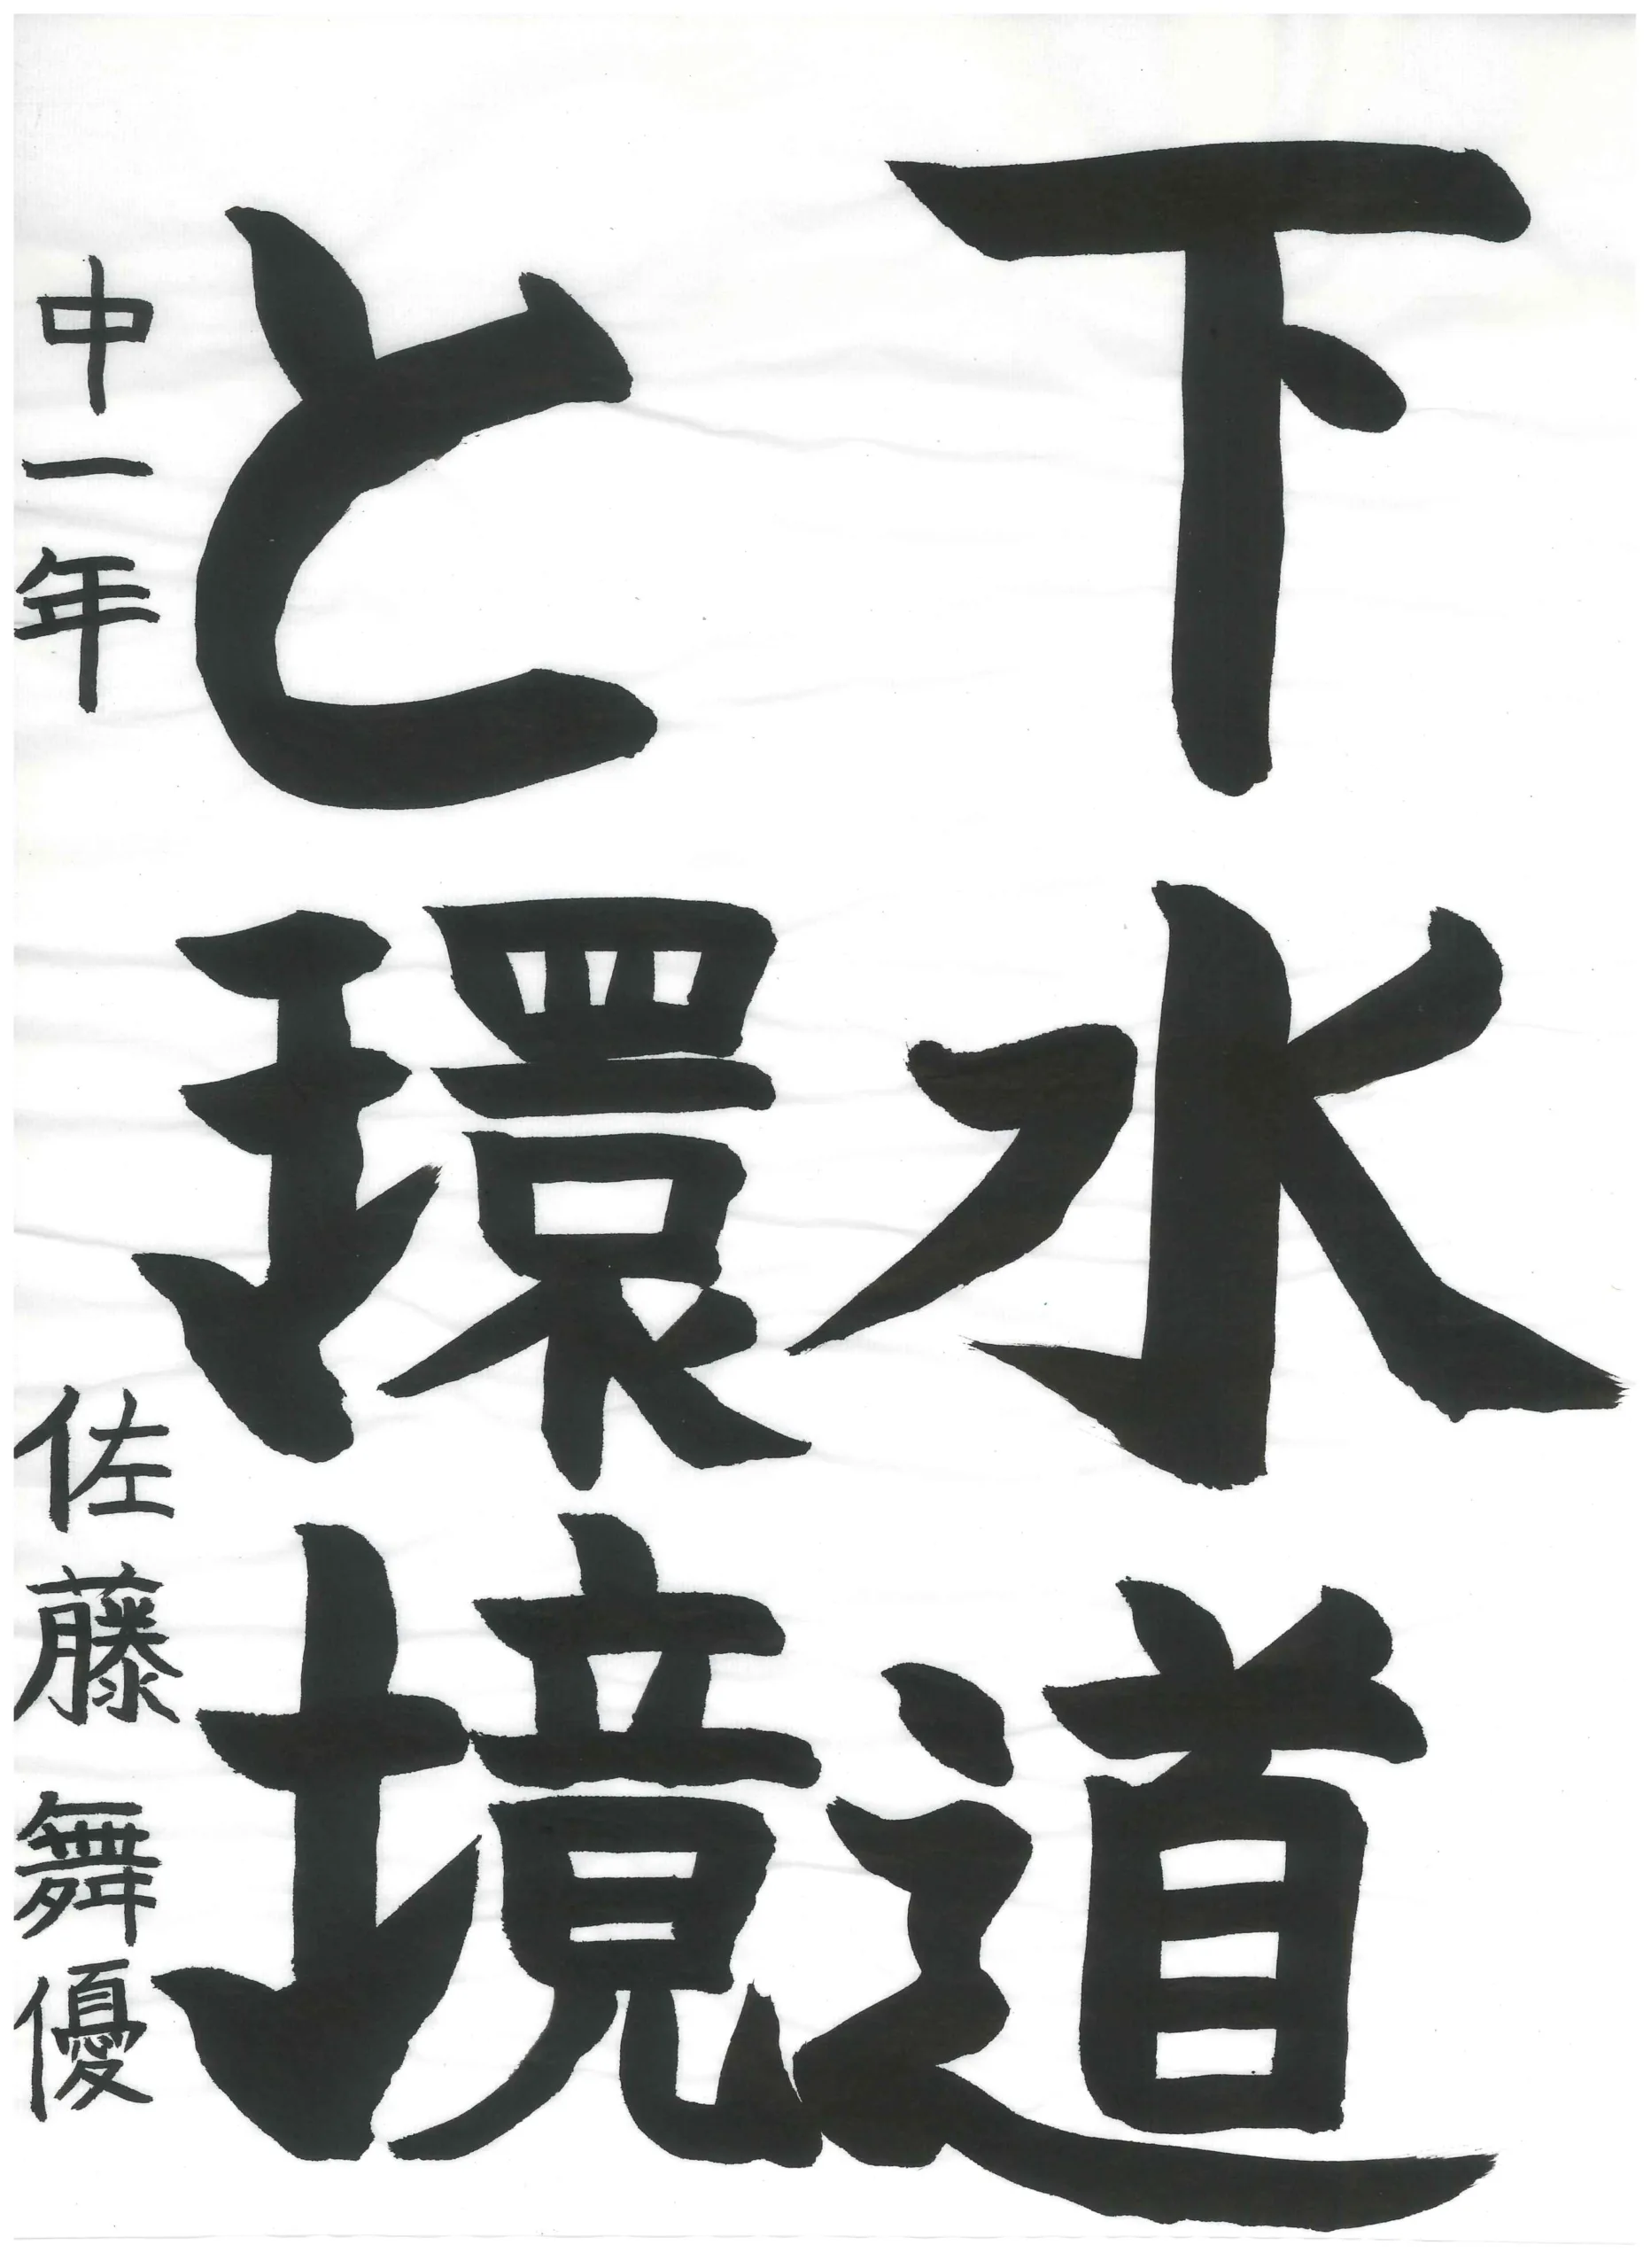 下水道
と環境
中一年 佐藤舞優